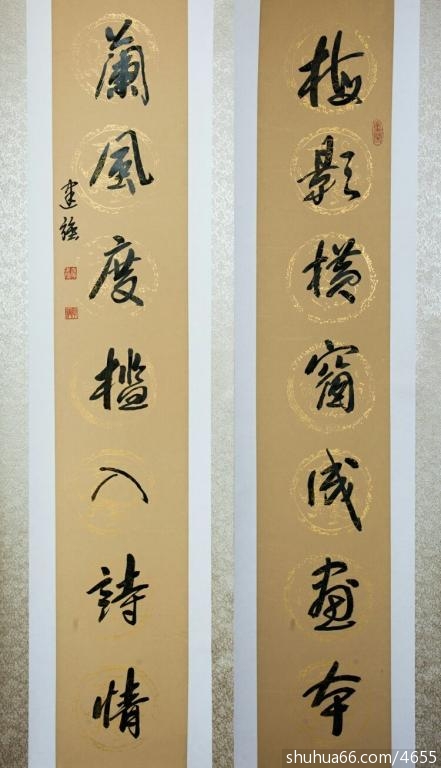 梅影横窗成画本
蘭風度檻入詩情
建強
shuhua66.com/4655